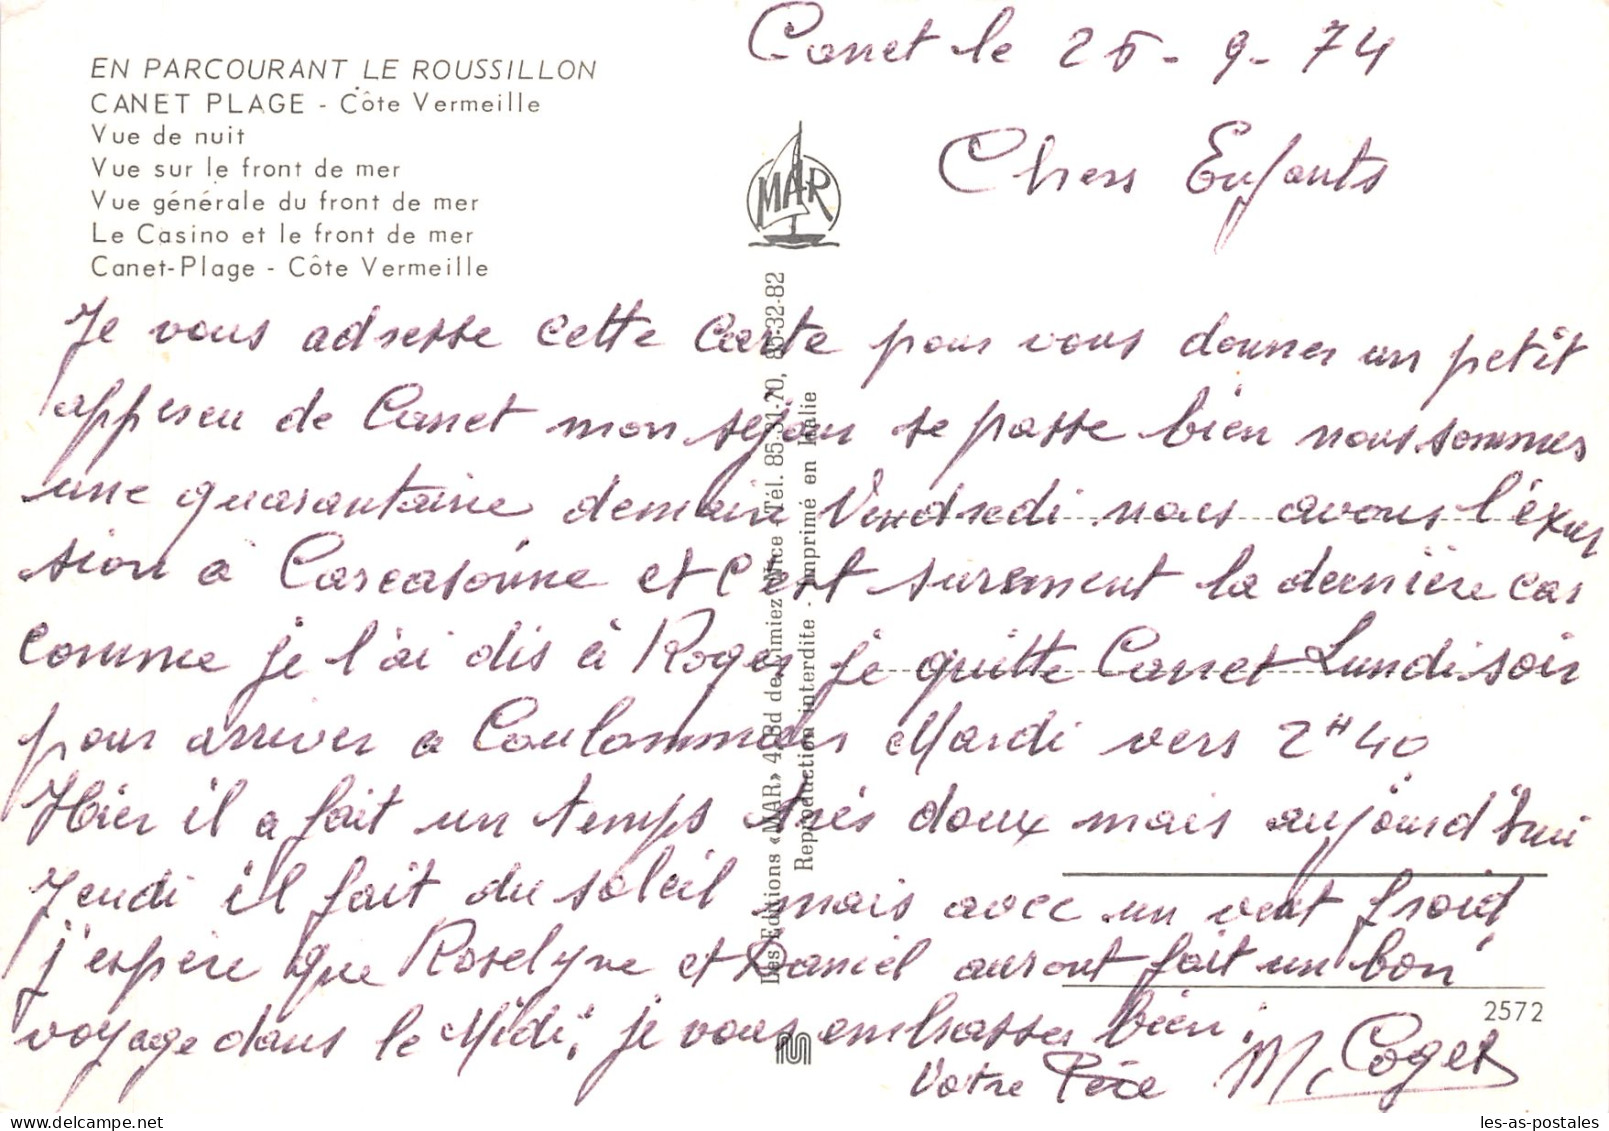 EN PARCOURANT LE ROUSSILLON
CANET PLAGE - Côte Vermeille
Vue de nuit
Vue sur le front de mer
Vue générale du front de mer
Le Casino et le front de mer
Canet-Plage - Côte Vermeille
MAR
Les Editions «MAR» Bd de Cimiez Nice Tél. 85-31-70, 85-32-82
Reproduction interdite - Imprimé en Italie
Canet le 26-9-74
Chers Enfants
Je vous adresse cette Carte pour vous donner un petit
appereu de Canet mon séjour se passe bien nous sommes
une quarantaine demain Vendredi nous avons l'éxcur
sion a Carcasonne et c'est surement la dernière car
comme je l'ai dis à Roger je quitte Canet Lundi soir
pour arriver a Coulommiers Mardi vers 2H40
Hier il a fait un temps trés doux mais aujourd'hui
Jeudi il fait du soleil mais avec un vent froid,
j'espère que Roselyne et Daniel auront fait un bon
voyage dans le Midi, je vous embrasses bien.
Votre Père M. Coget
2572
les-as-postales